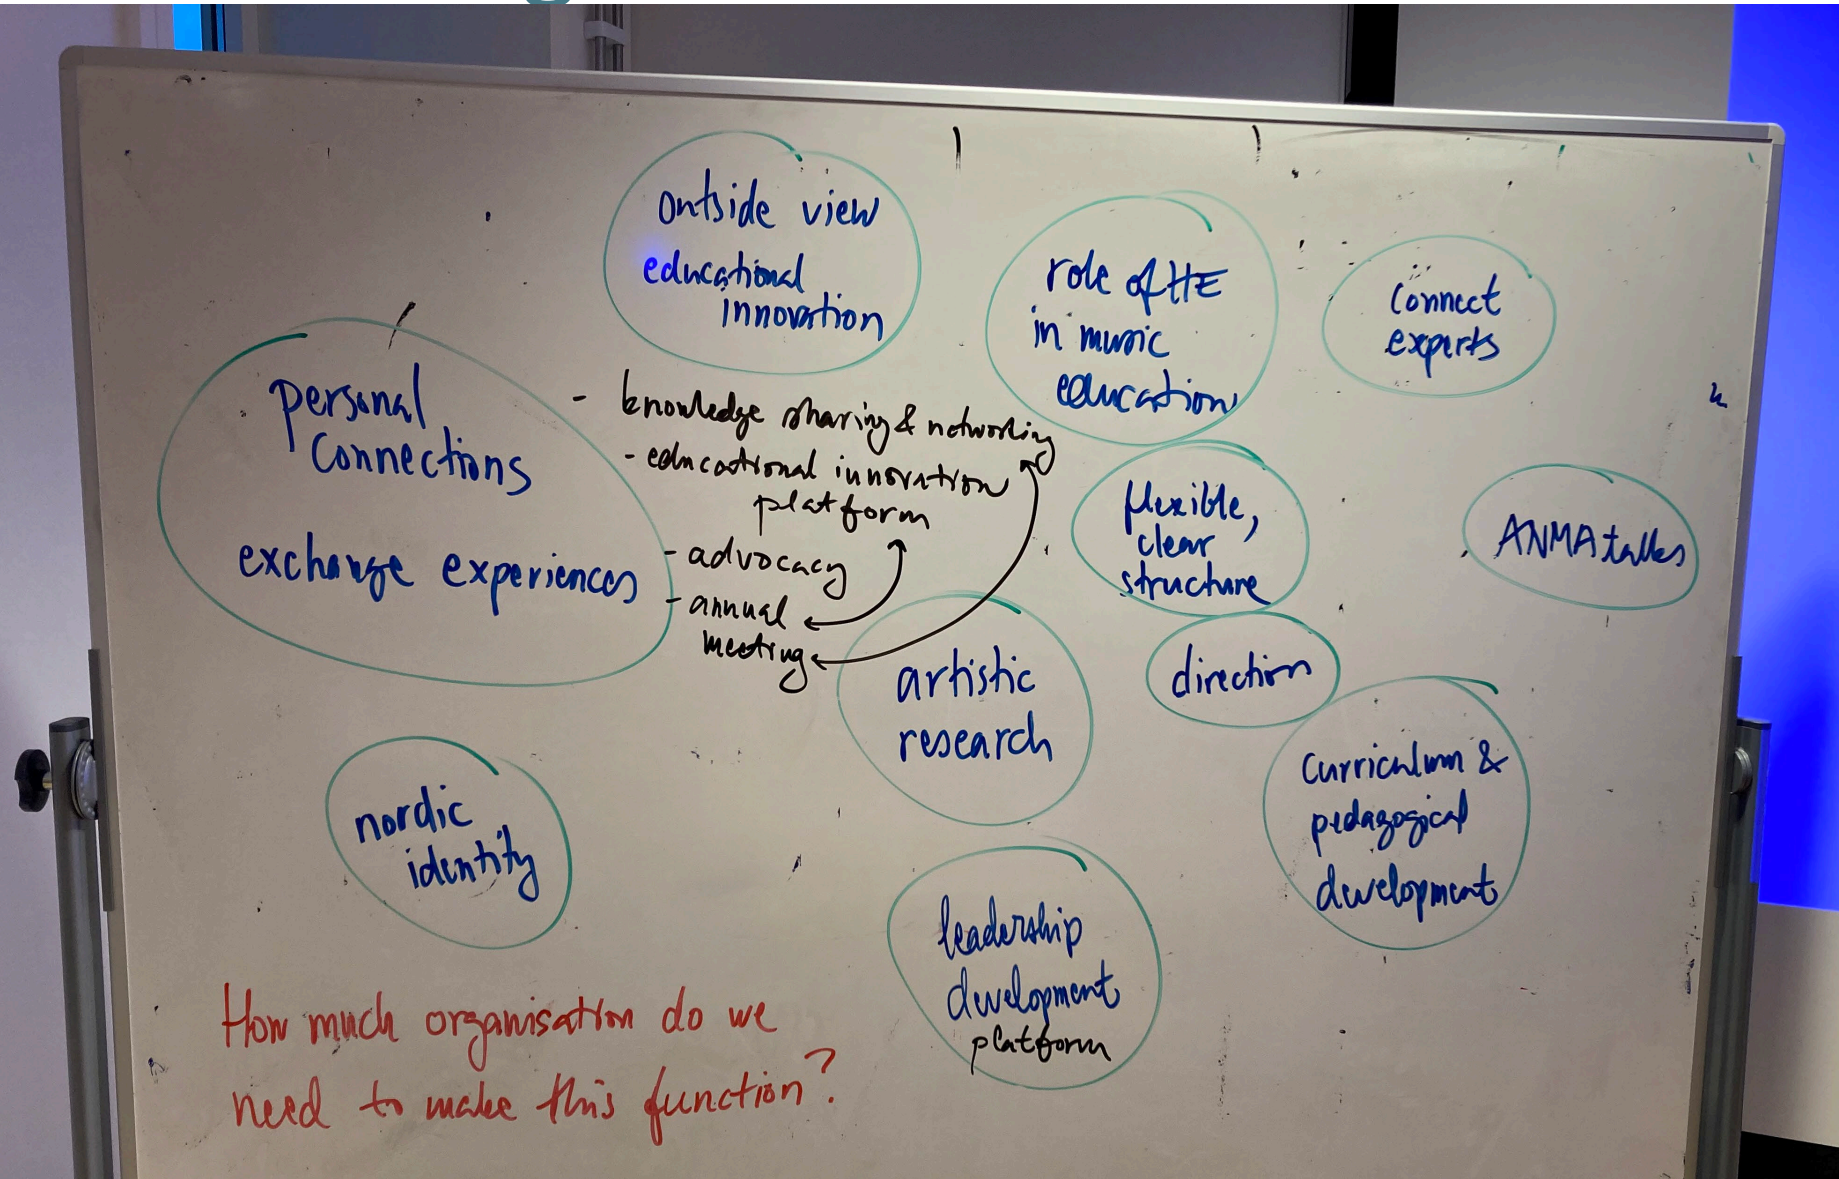 outside view
educational
innovation
role of HE
in music
education
connect
experts
personal
connections
exchange experiences
- knowledge sharing & networking
- educational innovation
platform
- advocacy
- annual
meeting
flexible,
clear
structure
ANMA talks
direction
artistic
research
curriculum &
pedagogical
development
nordic
identity
leadership
development
platform
How much organisation do we
need to make this function?